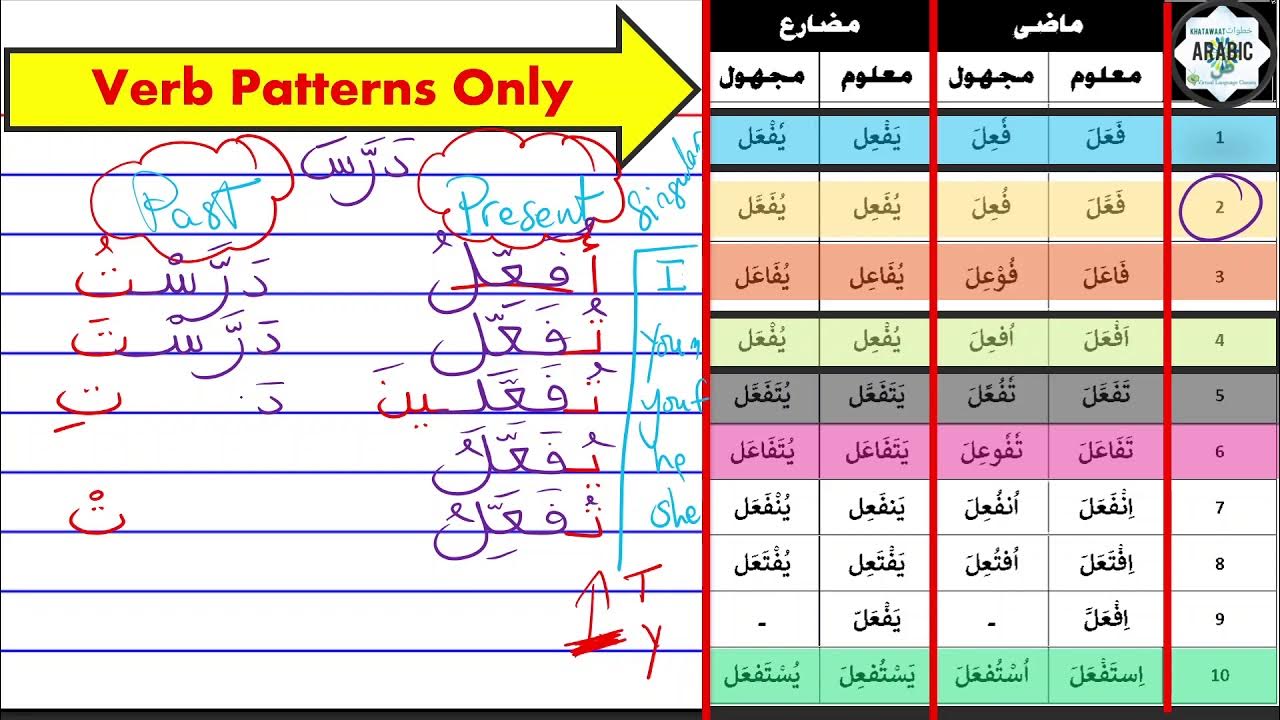 Verb Patterns Only
دَرَّسَ
Past
Present
singular
أُفَعِّلُ
دَرَّسْتُ
I
تُفَعِّلُ
دَرَّسْتَ
you m
تُفَعِّلِينَ
دَ
تِ
you f
يُفَعِّلُ
he
تُفَعِّلُ
تْ
she
T
Y
ماضي مضارع
معلوم مجهول معلوم مجهول
KHATAWAAT خطوات
ARABIC
Virtual Language Classes
1 فَعَلَ فُعِلَ يَفْعِل يُفْعَل
2 فَعَّلَ فُعِلَ يُفَعِل يُفَعَّل
3 فَاعَلَ فُوْعِلَ يُفَاعِل يُفَاعَل
4 اَفْعَلَ اُفعِلَ يُفْعِل يُفْعَل
5 تَفَعَّلَ تُفُعِّلَ يَتَفَعَّل يُتَفَعَّل
6 تَفَاعَلَ تُفُوعِلَ يَتَفَاعَل يُتَفَاعَل
7 اِنْفَعَلَ اُنفُعِلَ يَنفَعِل يُنْفَعَل
8 اِفْتَعَلَ اُفتُعِلَ يَفْتَعِل يُفْتَعَل
9 اِفْعَلَّ - يَفْعَلّ -
10 اِستَفْعَلَ اُسْتُفعَلَ يَسْتُفعِلَ يُسْتَفْعَل